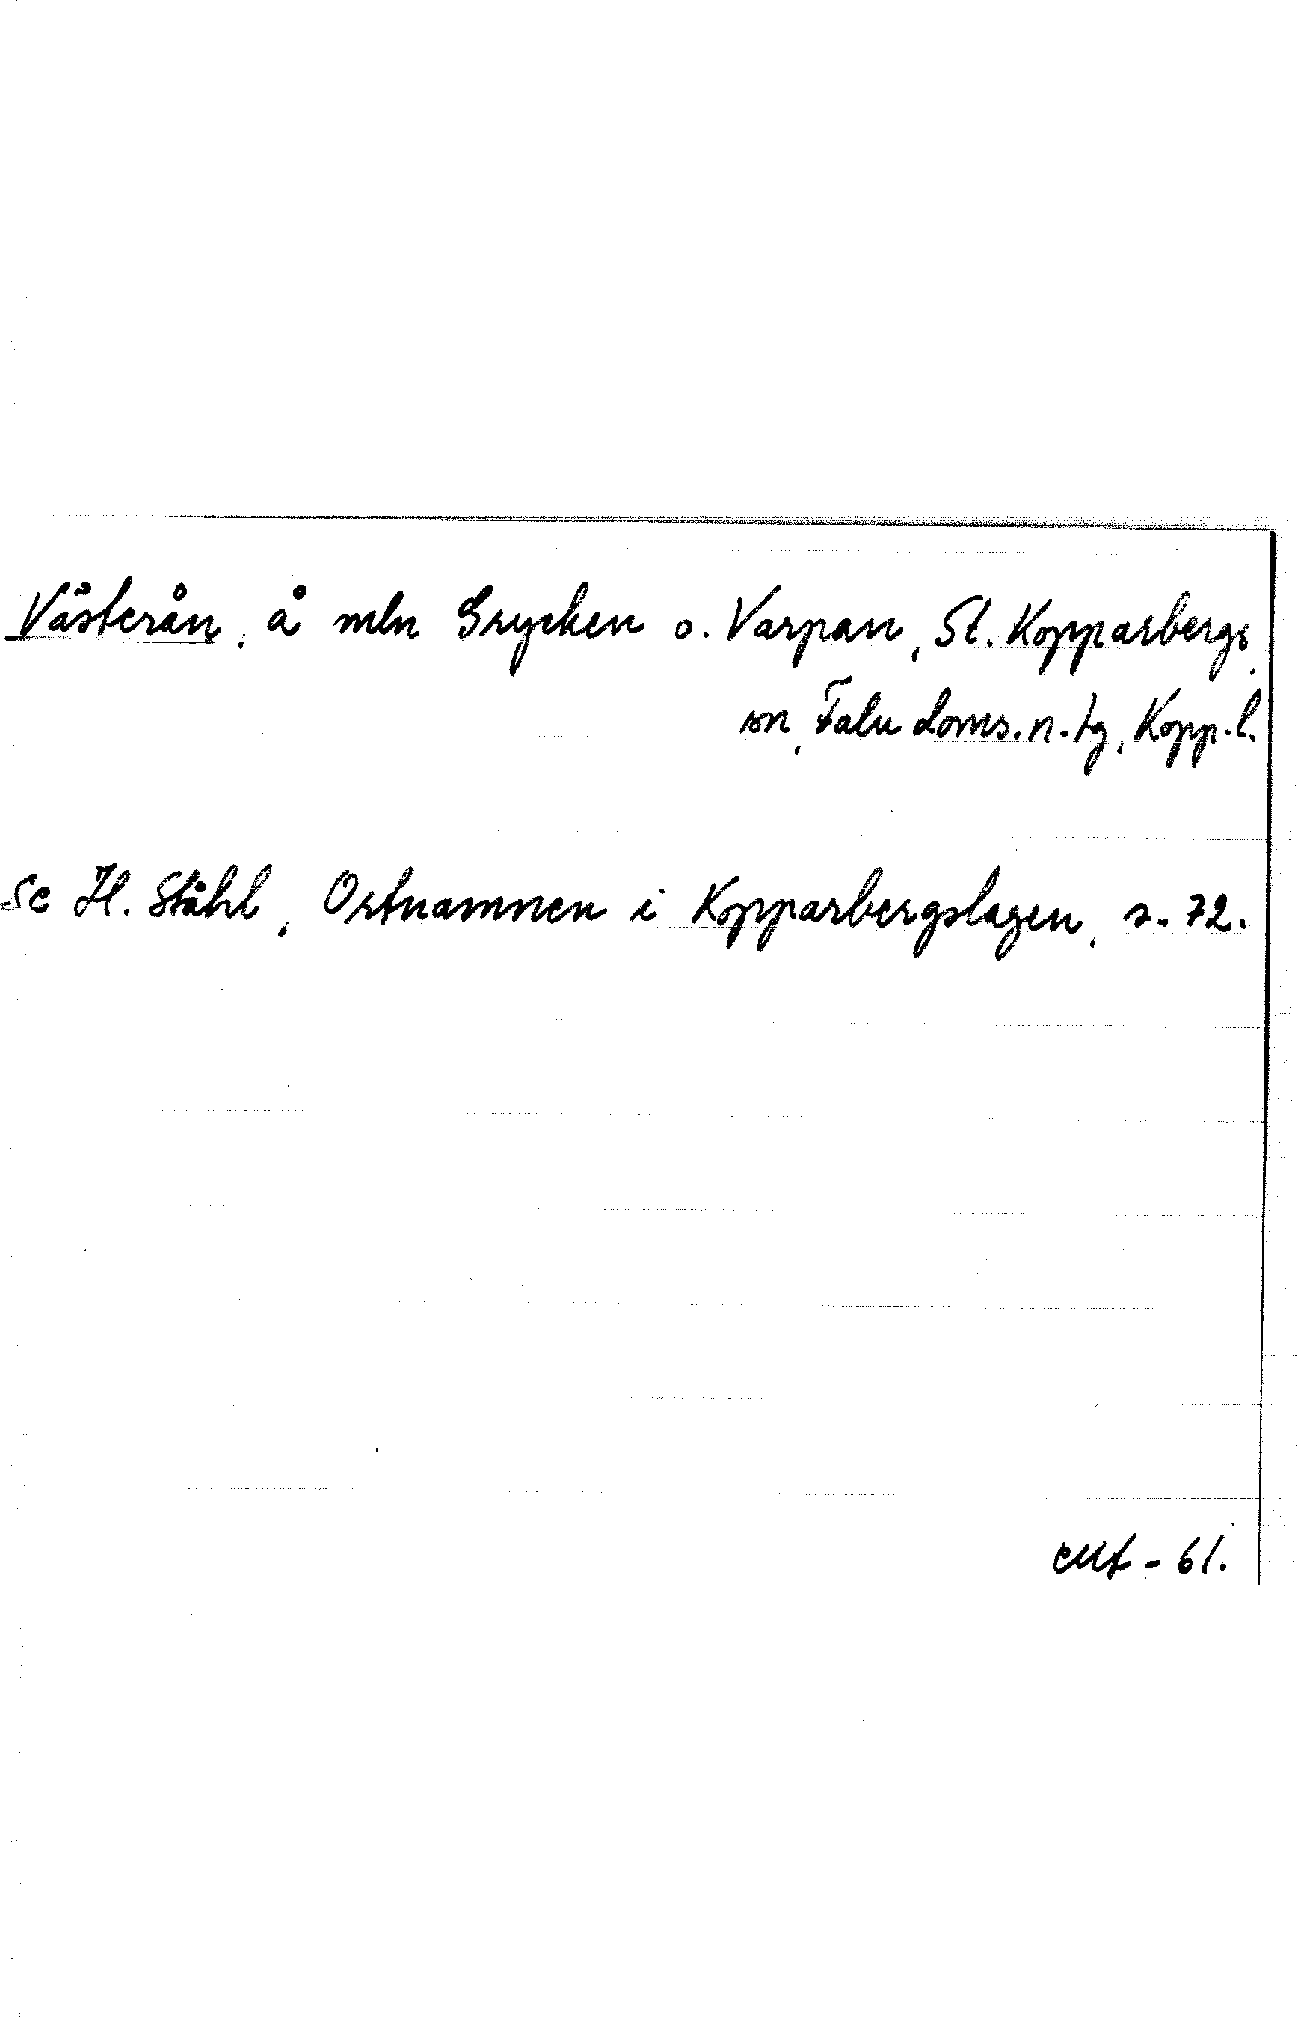 Västerån, å mln Grycken o. Varpan, St. Kopparbergs
sn, Falu doms.n.tg, Kopp.l.
Se H. Ståhl, Ortnamnen i Kopparbergslagen, s. 72.
- 61.